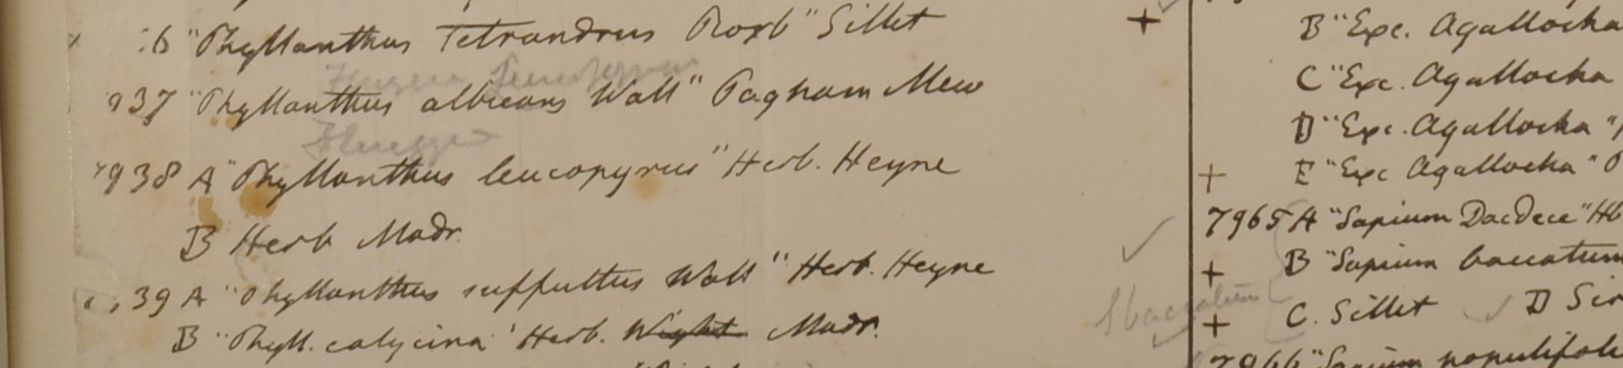 B "Phyllanthus Tetrandrus Roxb" Sillet +
Fluggea leucopyrus
937 "Phyllanthus albicans Wall" Pagham Mew
Fluggea
7938 A "Phyllanthus leucopyrus" Herb. Heyne
B Herb Madr.
39 A "Phyllanthus suffultus Wall" Herb. Heyne
B "Phyll. calycina" Herb. Wight Madr.
B "Exc. Agallocha
C "Exc. Agallocha
D "Exc. Agallocha "
+ E "Exc Agallocha"
7965 A "Sapium Dacdece" Hb
+ B "Sapium baccatum
S baccatum
+ C. Sillet D
7966 "Sapium populifoli